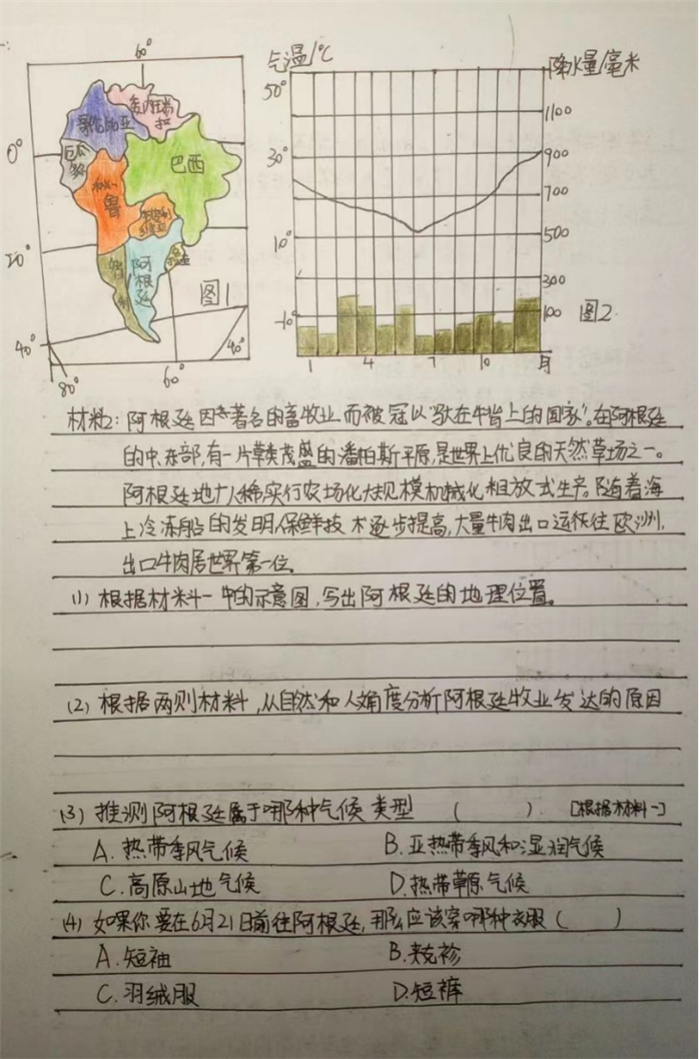 60°
气温/℃
降水量/毫米
50°
1100
委内瑞拉
哥伦比亚
0°
厄瓜多
巴西
30°
900
秘鲁
700
10°
500
20°
智利
阿根廷
图1
300
-10°
100
图2
40°
40°
1
4
7
10
月
80°
60°
材料2：阿根廷因著名的畜牧业而被冠以"驮在牛背上的国家"。在阿根廷
的中东部，有一片草类茂盛的潘帕斯平原，是世界上优良的天然草场之一。
阿根廷地广人稀，实行农场化大规模机械化粗放式生产。随着海
上冷冻船的发明，保鲜技术逐步提高，大量牛肉出口运往欧洲，
出口牛肉居世界第一位。
(1) 根据材料一中的示意图，写出阿根廷的地理位置。
(2) 根据两则材料，从自然和人文角度分析阿根廷牧业发达的原因
(3) 推测阿根廷属于哪种气候类型 （ ） [根据材料一]
A. 热带季风气候 B. 亚热带季风和湿润气候
C. 高原山地气候 D. 热带草原气候
(4) 如果你要在6月21日前往阿根廷，那么应该穿哪种衣服（ ）
A. 短袖 B. 夹衫
C. 羽绒服 D. 短裤